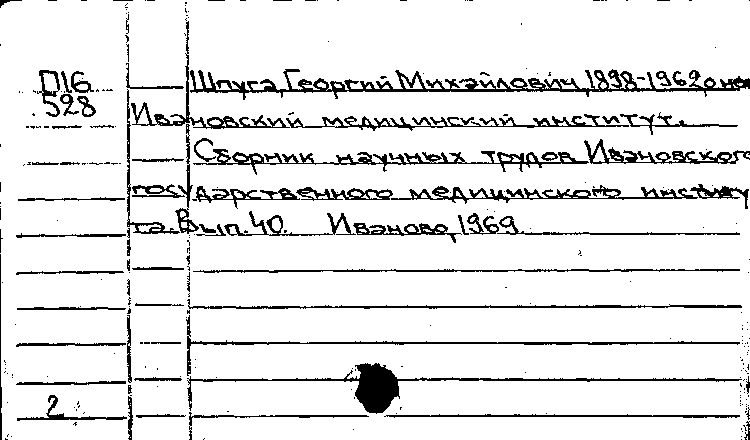 П16
528
Шпуга, Георгий Михайлович, 1898-1962, о нем
Ивановский медицинский институт.
Сборник научных трудов Ивановского
государственного медицинского институ
та. Вып. 40. Иваново, 1969.
2